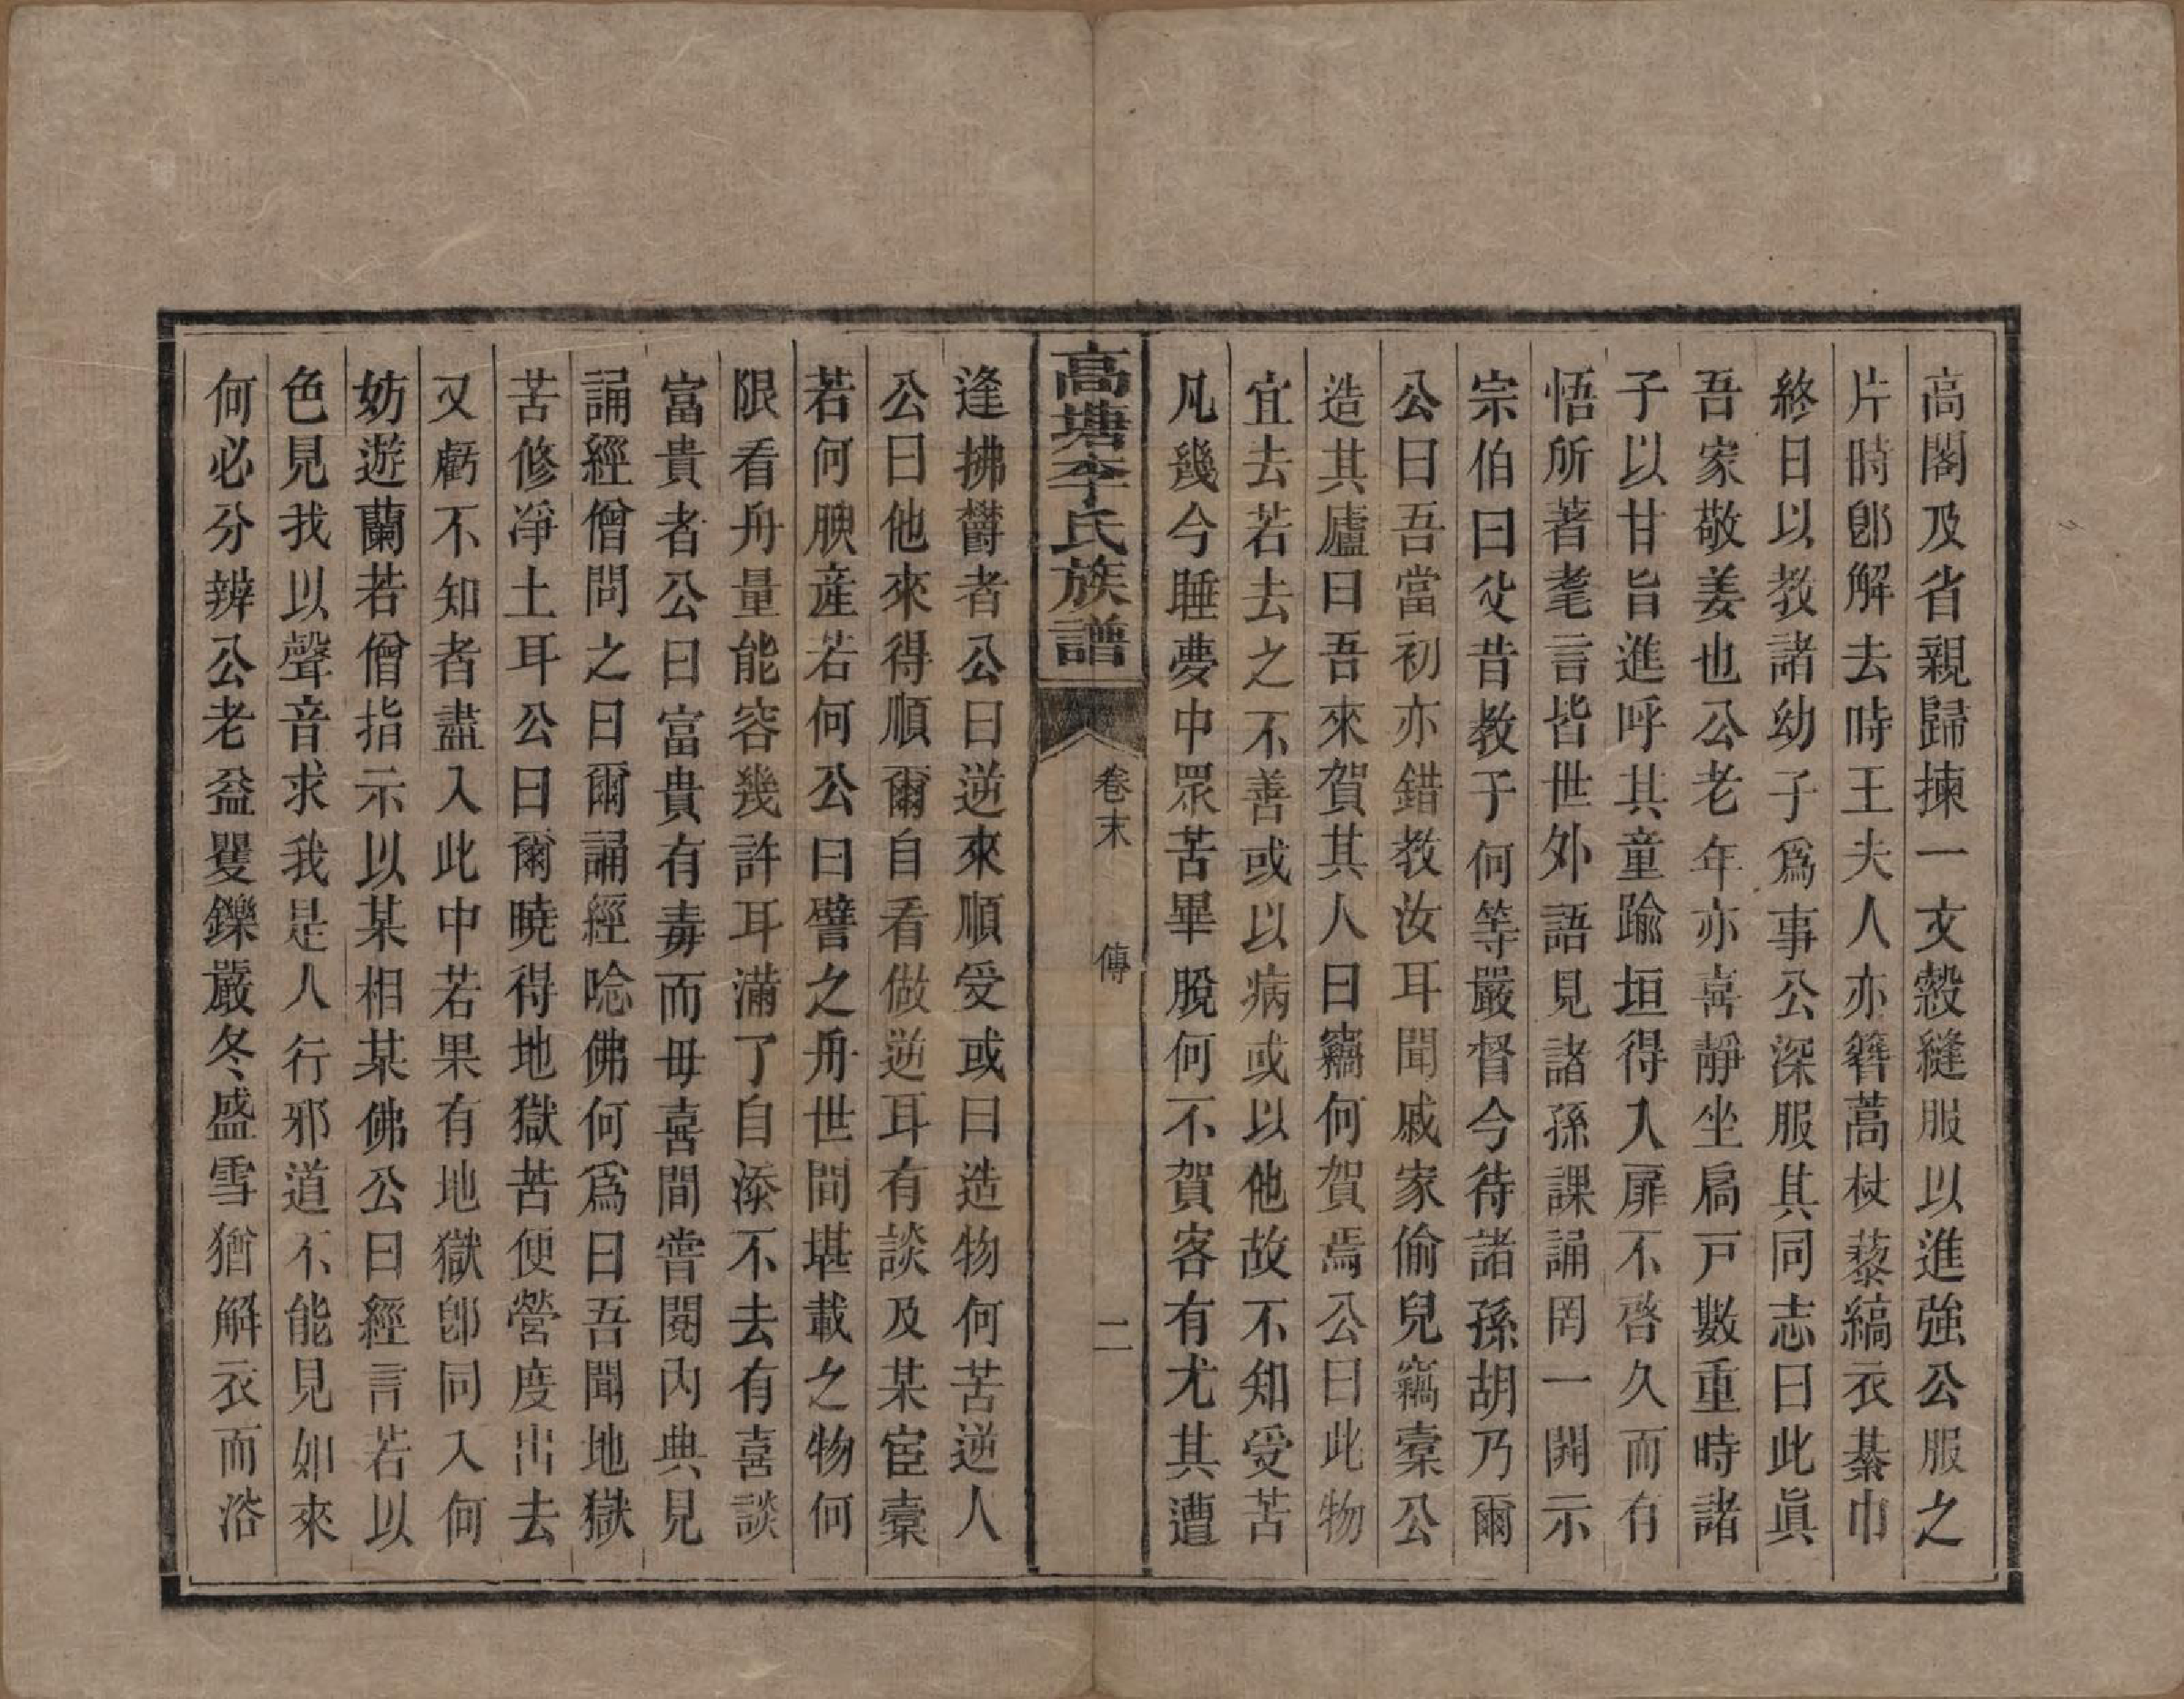 高閣及省親歸揀一文縠縫服以進強公服之
片時卽解去時王夫人亦簪蒿杖藜縞衣綦巾
終日以教諸幼子爲事公深服其同志曰此眞
吾家敬姜也公老年亦喜靜坐扃戸數重時諸
子以甘旨進呼其童踰垣得入扉不啓久而有
悟所著耄言皆世外語見諸孫課誦罔一開示
宗伯曰父昔教予何等嚴督今待諸孫胡乃爾
公曰吾當初亦錯教汝耳聞戚家偷兒竊橐公
造其廬曰吾來賀其人曰竊何賀焉公曰此物
宜去若去之不善或以病或以他故不知受苦
凡幾今睡夢中眾苦畢脫何不賀客有尤其遭
高塘李氏族譜
卷末 傳 二
逢拂鬱者公曰逆來順受或曰造物何苦逆人
公曰他來得順爾自看做逆耳有談及某宦橐
若何腴產若何公曰譬之舟世間堪載之物何
限看舟量能容幾許耳滿了自添不去有喜談
富貴者公曰富貴有毒而毋喜間嘗閱內典見
誦經僧問之曰爾誦經唸佛何爲曰吾聞地獄
苦修淨土耳公曰爾曉得地獄苦便營度出去
又虧不知者盡入此中若果有地獄卽同入何
妨遊蘭若僧指示以某相某佛公曰經言若以
色見我以聲音求我是人行邪道不能見如來
何必分辨公老益矍鑠嚴冬盛雪猶解衣而浴